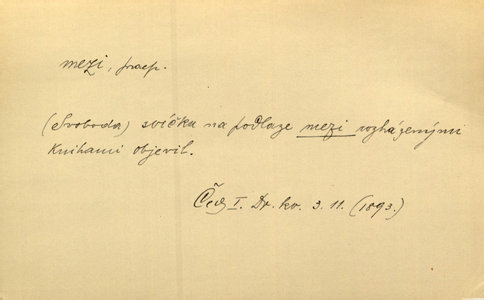 mezi, praep.
(Svoboda) svíčku na podlaze mezi rozházenými
knihami objevil.
Čech I. Dr. kv. 3. 11. (1893.)